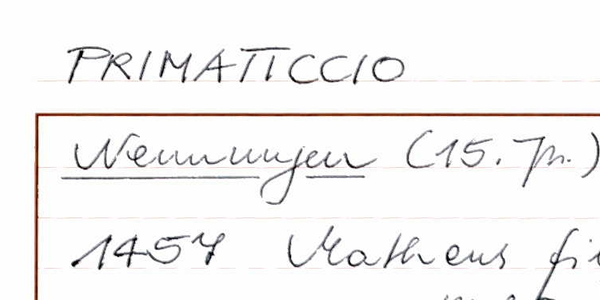 PRIMATICCIO
Nennungen (15. Jh.)
1457 Matheus